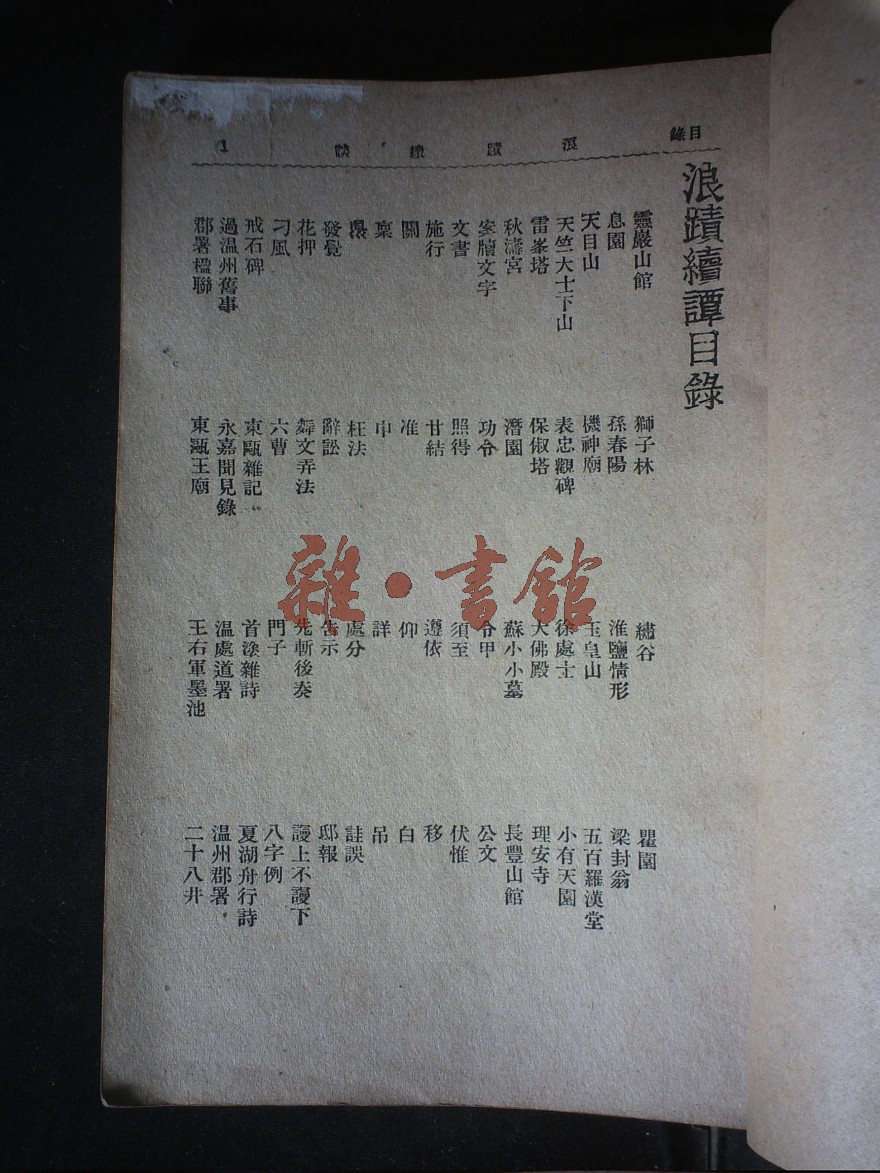 目錄
浪蹟續談
1
浪蹟續譚目錄
靈巖山館 獅子林 繡谷 瞿園
息園 孫春陽 淮鹽情形 梁封翁
天目山 機神廟 玉皇山 五百羅漢堂
天竺大士下山 表忠觀碑 徐處士 小有天園
雷峯塔 保俶塔 大佛殿 理安寺
秋濤宮 潛園 蘇小小墓 長豐山館
案牘文字 功令 令甲 公文
文書 照得 須至 伏惟
施行 甘結 遵依 移
關 准 仰 白
稟 申 詳 吊
枉法 處分 詿誤
發覺 辭訟 告示 邸報
花押 舞文弄法 先斬後奏 謾上不謾下
刁風 六曹 門子 八字例
戒石碑 東甌雜記 首塗雜詩 夏湖舟行詩
過温州舊事 永嘉聞見錄 温處道署 温州郡署
郡署楹聯 東甌王廟 王右軍墨池 二十八井
雜·書館